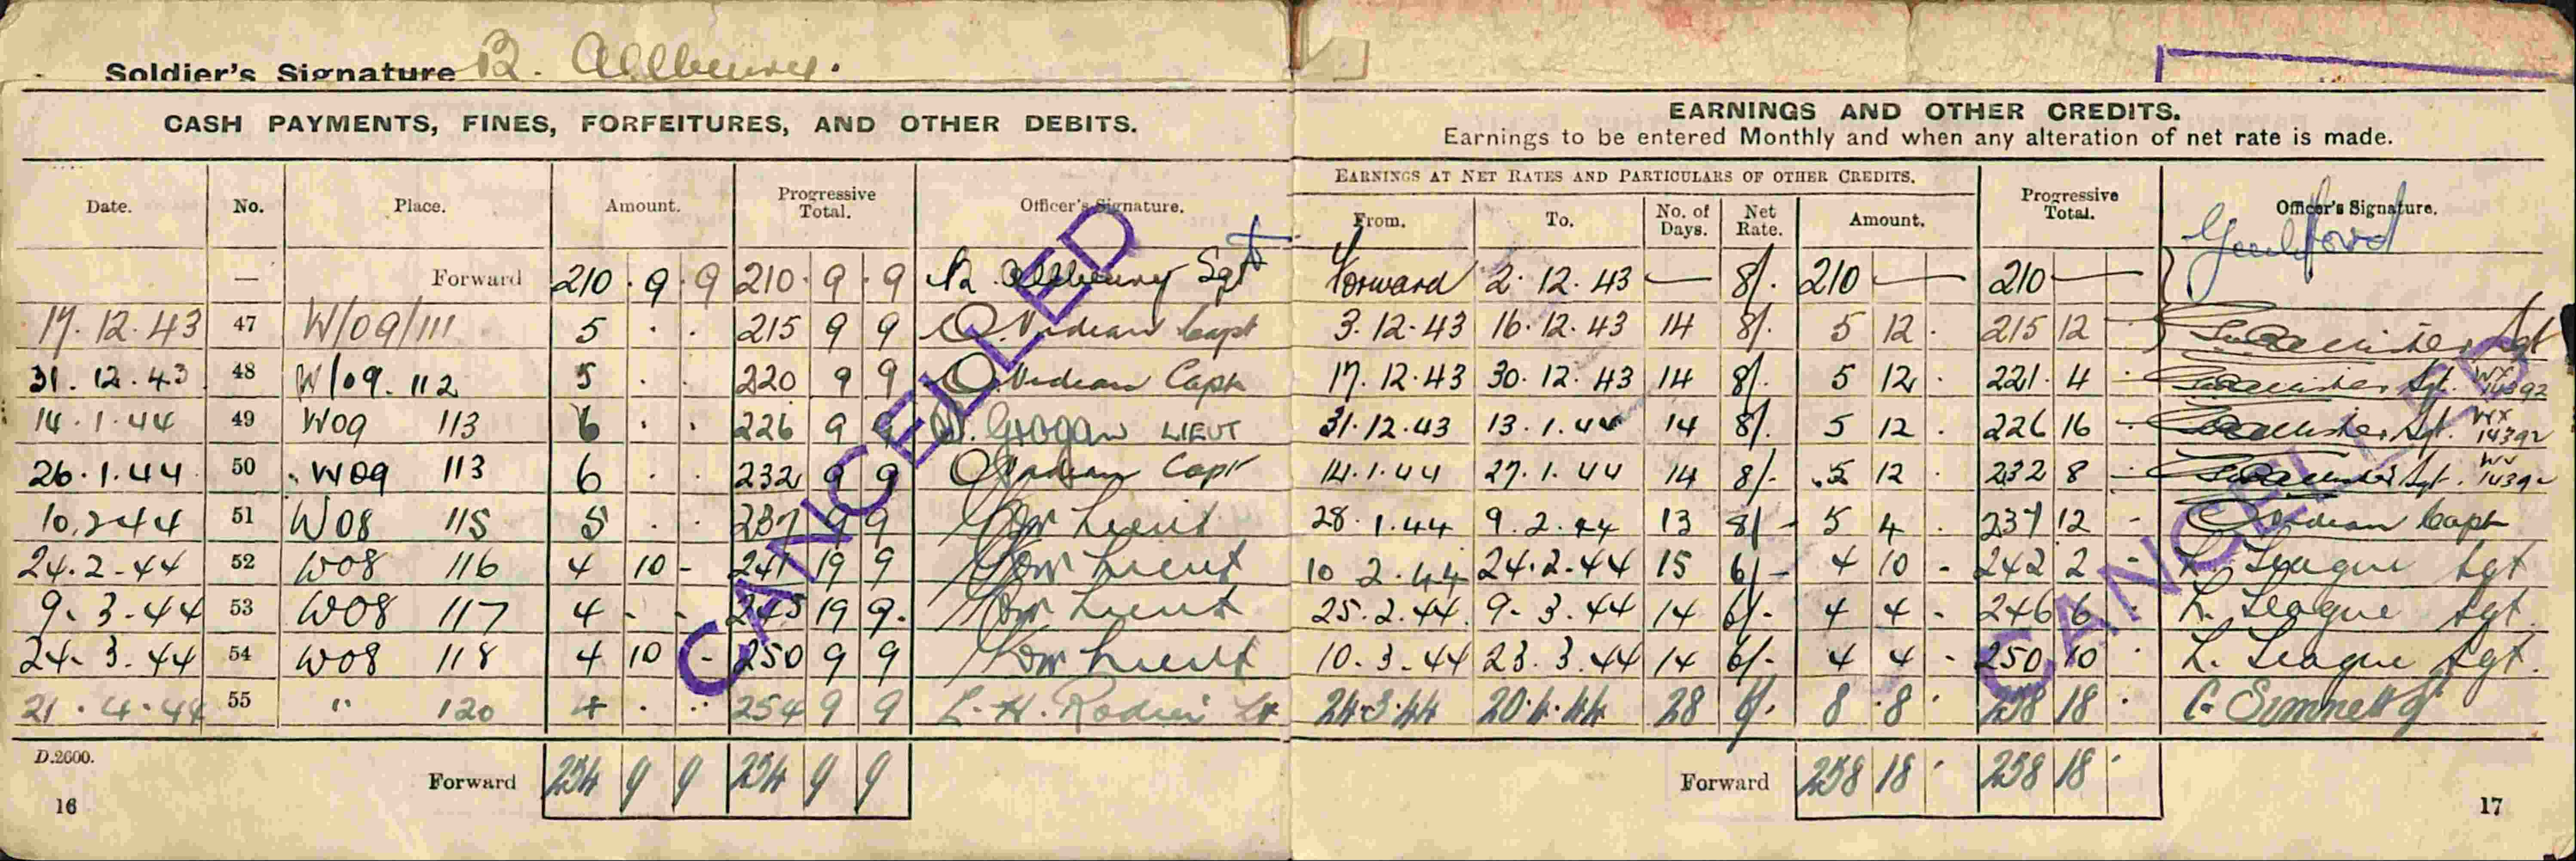 Soldier's Signature B.
CASH PAYMENTS, FINES, FORFEITURES, AND OTHER DEBITS.
Date. No. Place. Amount. Progressive Total. Officer's Signature.
— Forward 210 . 9 . 9 210 . 9 . 9 Sgt
17.12.43 47 W/09/111 5 . . 215 9 9 Capt
31.12.43 48 W/09.112 5 . . 220 9 9 Capt
14.1.44 49 W09 113 6 . . 226 9 9 Grogan LIEUT
26.1.44 50 W09 113 6 . . 232 9 9 Capt
10.2.44 51 W08 115 5 . . 237 9 9 Lieut
24.2-44 52 W08 116 4 10 - 241 19 9 Lieut
9.3-44 53 W08 117 4 - - 245 19 9. Lieut
24.3.44 54 W08 118 4 10 - 250 9 9 Lieut
21.4.44 55 " 120 4 . . 254 9 9 L. H. Lt
D.2600.
Forward 254 9 9 254 9 9
16
CANCELLED
EARNINGS AND OTHER CREDITS.
Earnings to be entered Monthly and when any alteration of net rate is made.
EARNINGS AT NET RATES AND PARTICULARS OF OTHER CREDITS.
From. To. No. of Days. Net Rate. Amount. Progressive Total. Officer's Signature.
forward 2.12.43 — 8/. 210 — 210 —
3.12.43 16.12.43 14 8/. 5 12 . 215 12 - Sgt
17.12.43 30.12.43 14 8/. 5 12 . 221 . 4 - Sgt. WX 14392
31.12.43 13.1.44 14 8/. 5 12 . 226 16 - Sgt. WX 14392
14.1.44 27.1.44 14 8/- 5 12 . 232 8 - Sgt. WX 14392
28.1.44 9.2.44 13 8/- 5 4 . 237 12 - Capt
10 2.44 24.2.44 15 6/- 4 10 - 242 2 - L. League Sgt
25.2.44. 9-3.44 14 6/- 4 4 - 246 6 . L. League Sgt.
10.3.44 23.3.44 14 6/- 4 4 - 250 10 . L. League Sgt.
24.3.44 20.4.44 28 6/. 8 . 8 . 258 18 .
Forward 258 18 . 258 18 .
17
CANCELLED